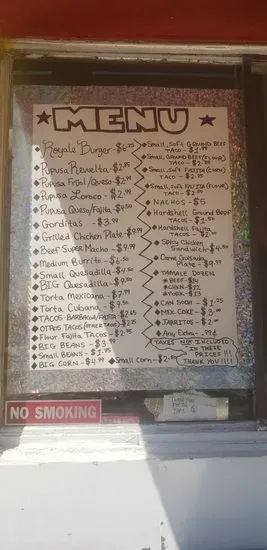 MENU
Royale Burger - $6.75
Pupusa Revuelta - $2.85
Pupusa Frijol/Queso - $2.99
Pupusa Loroco - $2.99
Pupusa Queso/Fajita - $4.50
Gorditas - $3.99
Grilled Chicken Plate - $9.99
Beef Super Macho - $9.99
Medium Burrito - $6.50
Small Quesadilla - $4.50
BIG Quesadilla - $9.50
Torta Mexicana - $7.99
Torta Cubana - $9.50
TACOS - BARBACOA/FAJITA - $2.65
OTROS TACOS - $2.25
Flour Fajita Tacos - $2.75
BIG BEANS - $3.
Small BEANS - $1.75
BIG CORN - $4.99
Small Corn - $2.
Small, Soft GROUND BEEF
TACO - $1.99
Small, GROUND BEEF (FLOUR)
TACO -
Small, Soft FAJITA (CORN)
TACO -
Small, Soft FAJITA (FLOUR)
TACO -
NACHOS - $5
Hardshell Ground BEEF
TACOS -
Hardshell Fajita
TACOS -
Spicy Chicken
Sandwich - $4.50
Carne Guisada
Plate -
TAMALE DOZEN
BEEF
PORK - $13
CAN SODA - $1.25
MIX. COKE - $3.00
JARRITOS - $2.00
Any Extra - .79¢
TAXES NOT INCLUDED
IN THESE
PRICES!!!
THANK YOU!!!!
NO SMOKING